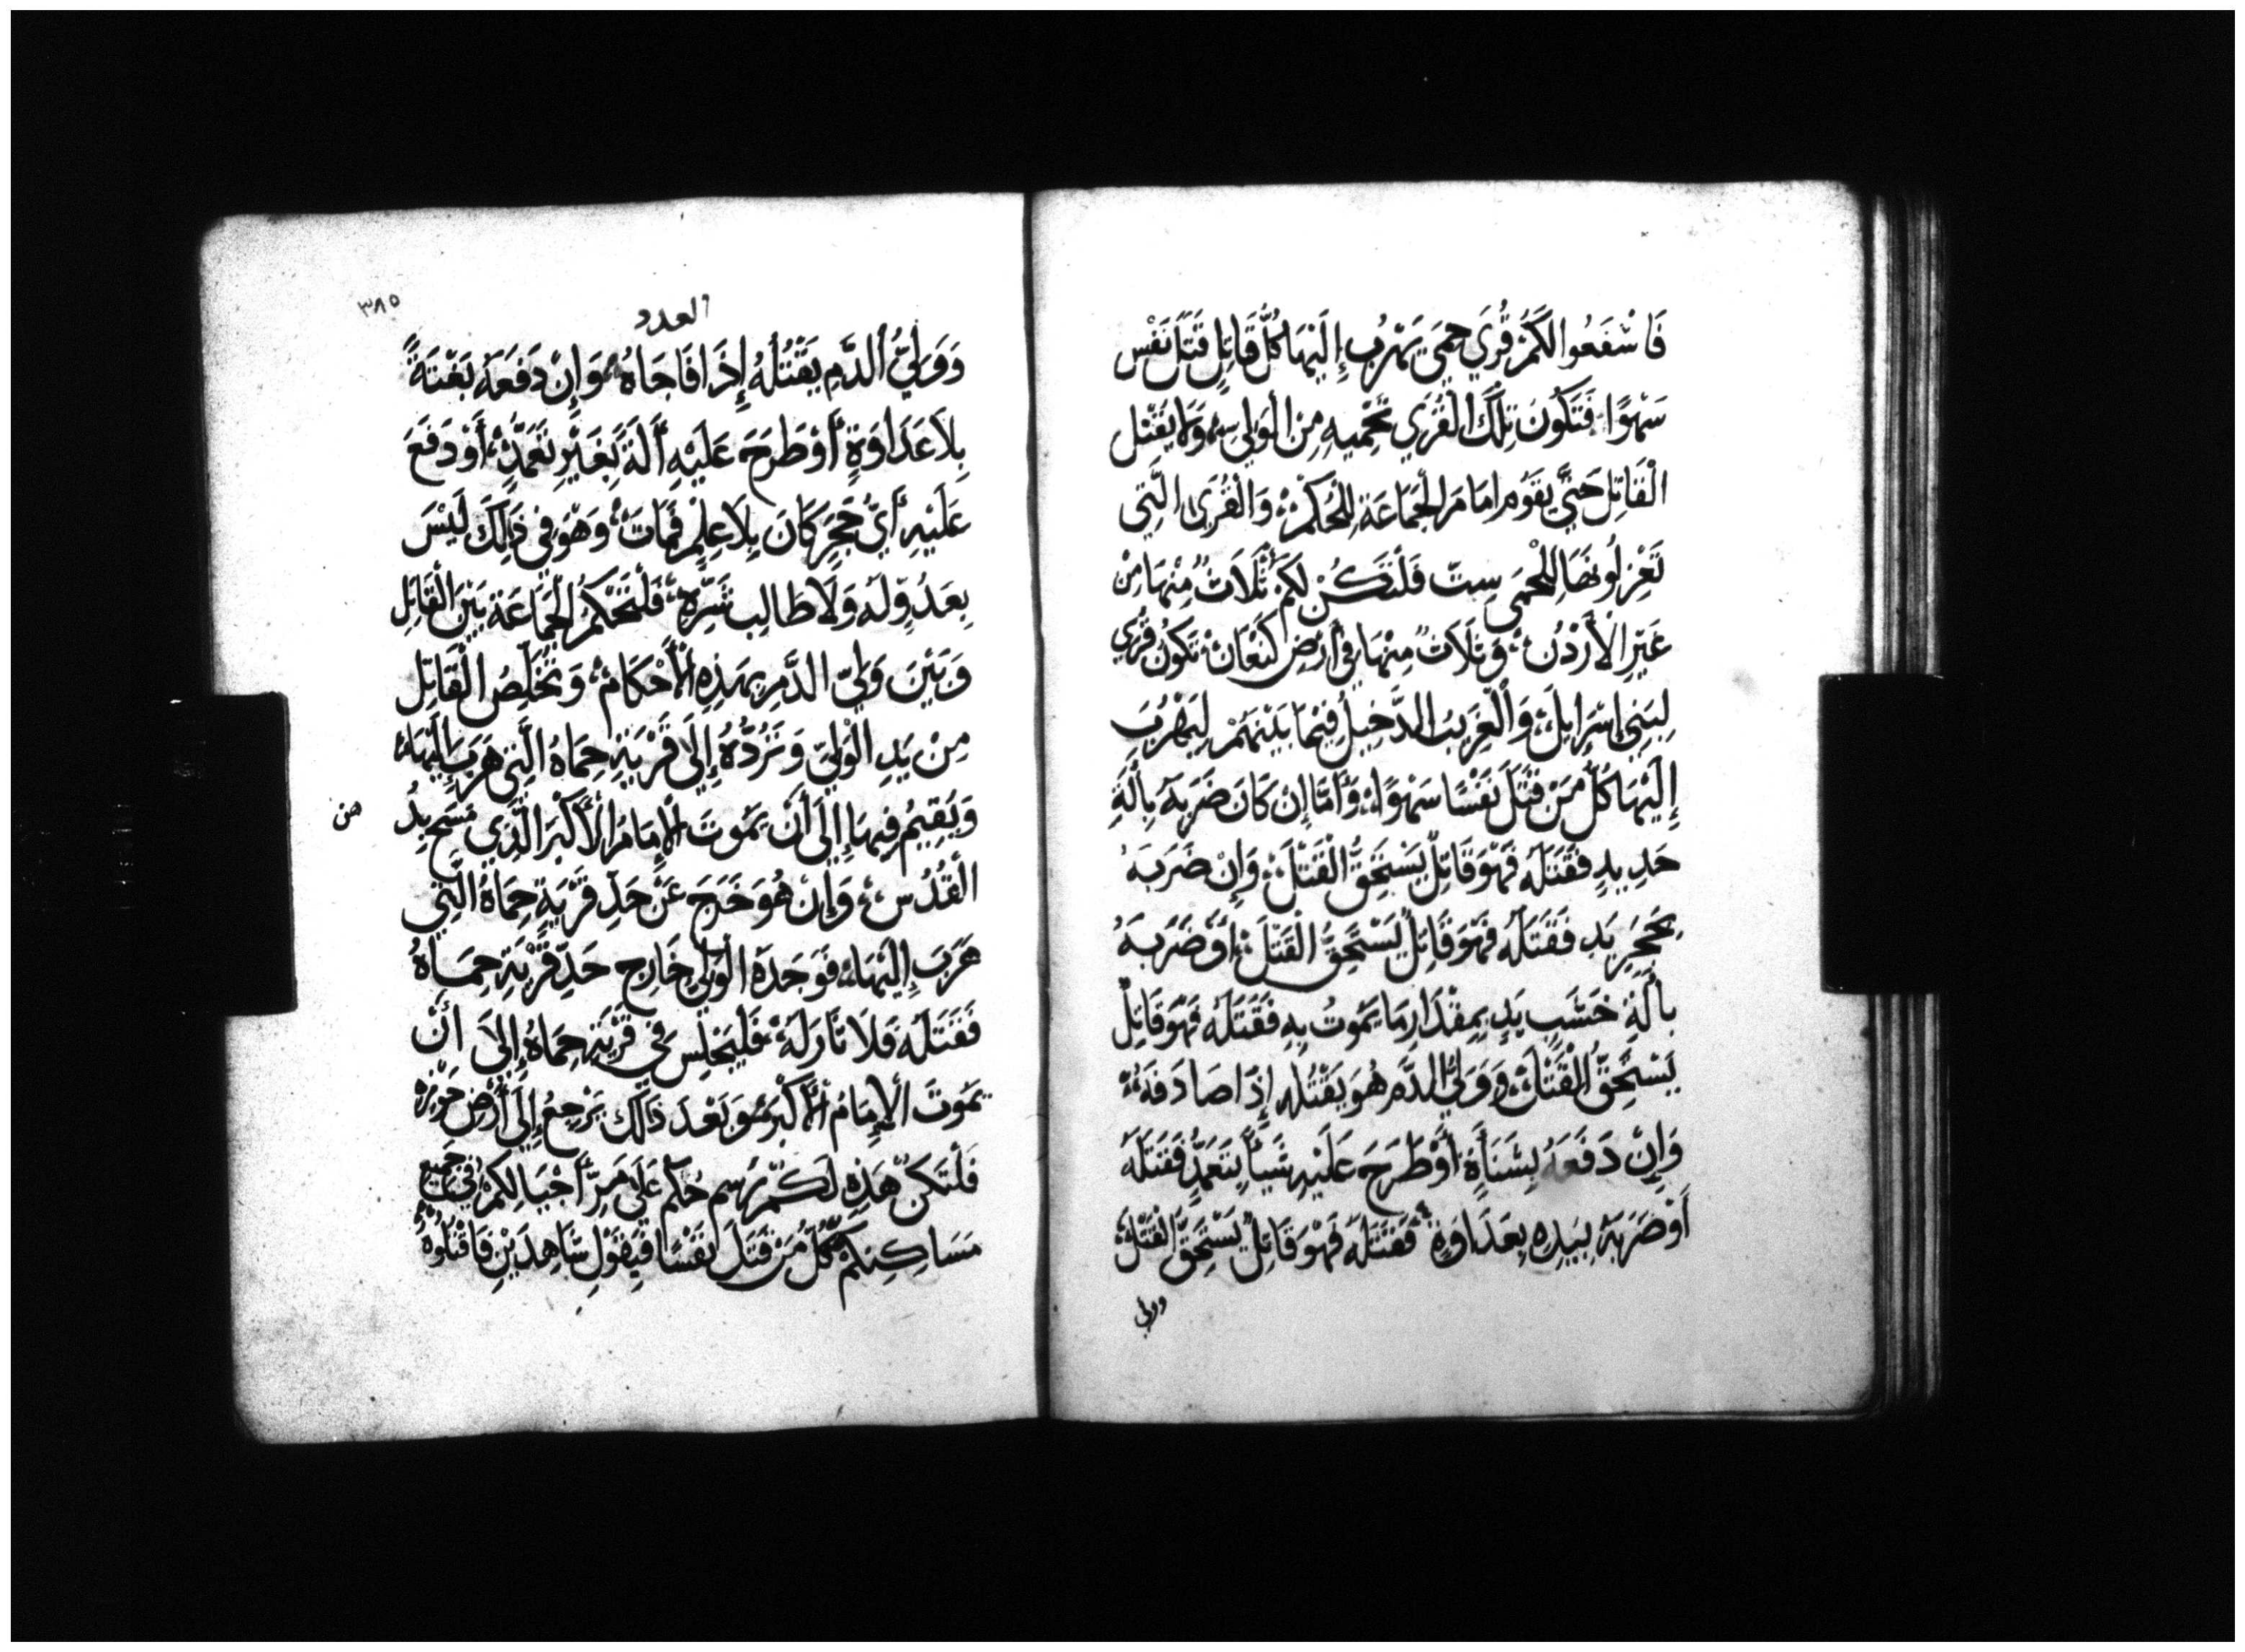 فَاشْفَعُوا لَكُمْ قُرَي حِمَي يَهْرُب إِلَيْهَا كُلُّ قَاتِلٍ قَتَلَ نَفْس
سَهْوًا فَتَكُونَ تِلْكَ الْقُرَي تَحْمِيهِ مِنَ الْوَلِي وَلَا يُقْتَل
الْقَاتِل حَتَّي يَقُوم امَامَ الْجَمَاعَةِ لِلْحُكْمْ وَالْقُرَى الَّتِي
تَعْزِلُونَهَا لِلْحِمَى سِتّ فَلْتَكُنْ لَكُمْ ثَلَاثٌ مِنْهَا مِنْ
عَبْرِ الْأَرْدُن وَثَلَاثٌ مِنْهَا فِي أَرْضِ كَنْعَانْ تَكُونُ قُرَي
لِبَنِي إِسْرَايِلَ وَالْغَرِيبُ الدَّخِيلُ فِيْمَا بَيْنَهُمْ لِيَهْرُبَ
إِلَيْهَا كُلُّ مَنْ قَتَلَ نَفْسًا سَهْوًا وَأَمَّا إِنْ كَانَ ضَرَبَهُ بِآلَةِ
حَدِيدٍ فَقَتَلَهُ فَهْوَ قَاتِلٌ يَسْتَحِقُّ الْقَتْلَ وَإِنْ ضَرَبَهُ
بِحَجَرِ يَدٍ فَقَتَلَهُ فَهْوَ قَاتِلٌ يَسْتَحِقُّ الْقَتْلَ أَوْ ضَرَبَهُ
بِآلَةِ خَشَبِ يَدٍ بِمِقْدَارِ مَا يَمُوتُ بِهِ فَقَتَلَهُ فَهْوَ قَاتِلٌ
يَسْتَحِقُّ الْقَتْلَ وَوَلِيُّ الدَّم هُوَ يَقْتُلُه إِذَا صَادَفَهُ
وَإِنْ دَفَعَهُ بِشَنَأَةٍ أَوْ طَرَحَ عَلَيْهِ شَيأً بِتَعَمُّدٍ فَقَتَلَهُ
أَوْ ضَرَبَهُ بِيَدِهِ بِعَدَاوَةٍ فَقَتَلَهُ فَهْوَ قَاتِلٌ يَسْتَحِقُّ الْقَتْلَ
وولي
العدد
٣٨٥
وَوَلِيُّ الدَّمِ يَقْتُلُهُ إِذَا فَاجَاهُ وَإِنْ دَفَعَهُ بَغْتَةً
بِلَا عَدَاوَةٍ أَوْ طَرَحَ عَلَيْهِ أَلَةً بِغَيْرِ تَعَمُّدٍ أَوْ دَفَعَ
عَلَيْهِ أَيّ حَجَرٍ كَانَ بِلَا عِلْمٍ فَمَاتَ وَهْوَ فِي ذَلِكَ لَيْسَ
بِعَدُوٍّ لَهُ وَلَا طَالِب شَرِّهِ فَلْتَحْكُمُ الْجَمَاعَة بَيْنَ الْقَاتِلِ
وَبَيْنَ وَلِيِّ الدَّمِ بِهَذِهِ الْأَحْكَامْ وَتُخَلِّصُ الْقَاتِل
مِنْ يَدِ الْوَلِيّ وَتَرُدُّهُ إِلَى قَرْيَةِ حِمَاهُ الَّتِي هَرَبَ إِلَيْهَا
وَيُقِيمُ فِيهَا إِلَى أَنْ يَمُوتَ الْإِمَامُ الْأَكْبَر الَّذِي مَسَحَ بِدُهْنِ
الْقُدُسْ وَإِنْ هُوَ خَرَجَ عَنْ حَدِّ قَرْيَةِ حِمَاهُ الَّتِي
هَرَبَ إِلَيْهَا فَوَجَدَهُ الْوَلِي خَارِج حَدِّ قَرْيَةِ حِمَاهُ
فَقَتَلَهُ فَلَا ثَارَ لَهُ فَلْيَجْلِس فِي قَرْيَةِ حِمَاهُ إِلَى أَنْ
يَمُوتَ الْإِمَامُ الْأَكْبَر وَبَعْدَ ذَلِكَ يَرْجِعُ إِلَى أَرْضِ حَوْزِهِ
فَلْتَكُنْ هَذِهِ لَكُمْ رَسم حُكْم عَلَى مَرِّ أَجْيَالِكُمْ فِي جَمِيعِ
مَسَاكِنِكُمْ كُلُّ مَنْ قَتَلَ نَفْسًا فَبِقَوْلِ شَاهِدَيْنِ فَاقْتُلُوهُ